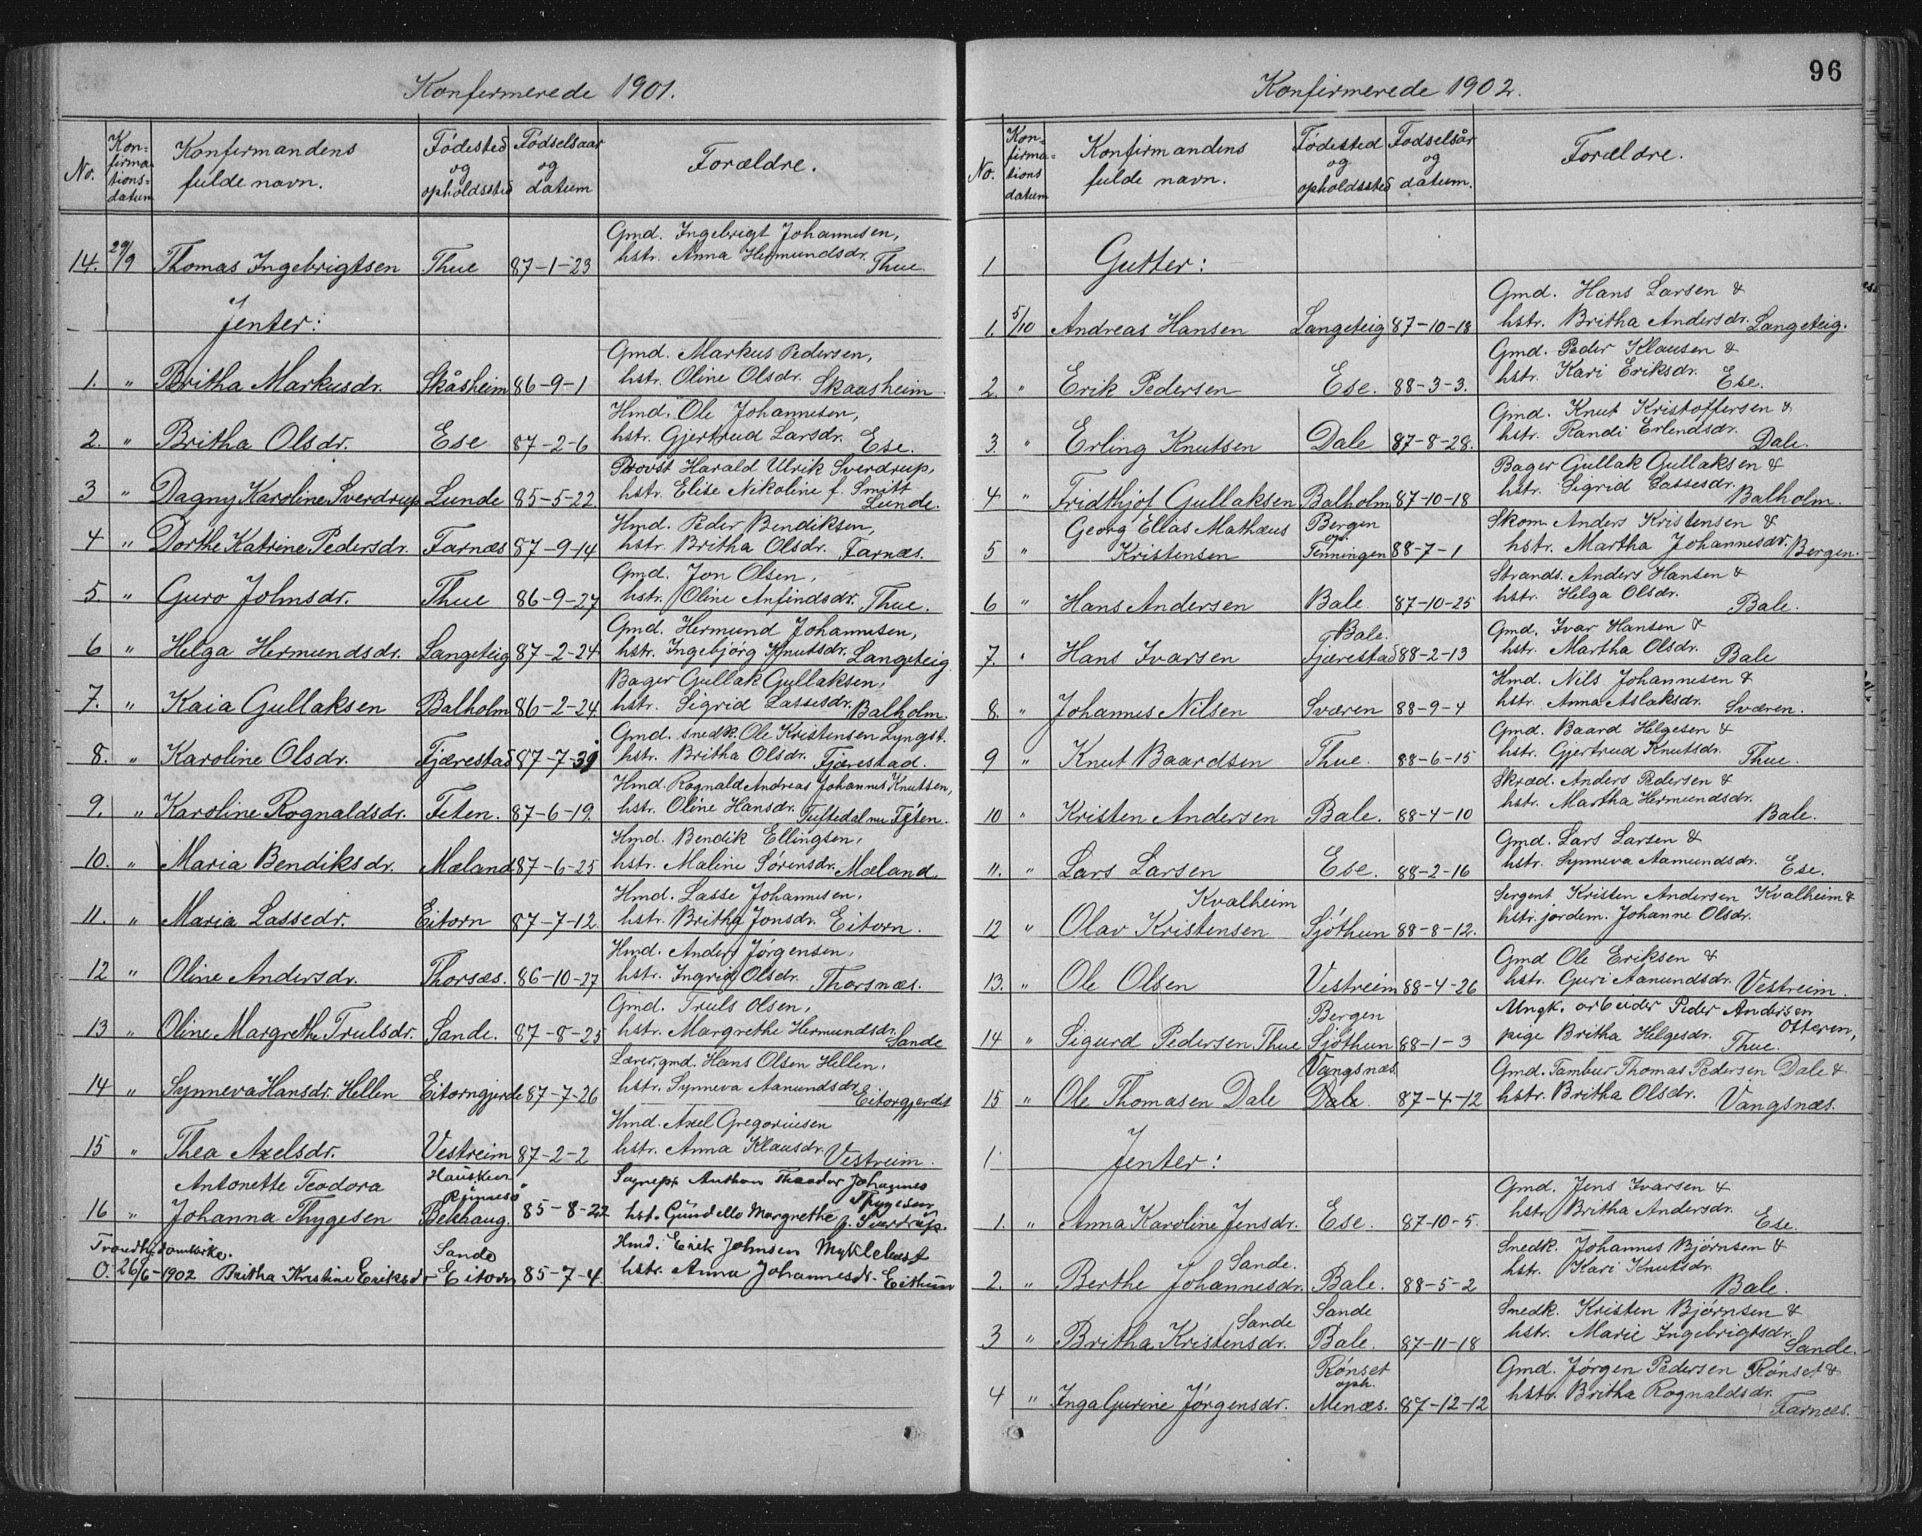 Konfirmerede 1901.
No.
Kon-
firma-
tions-
datum
Konfirmandens
fulde navn.
Fødested
og
opholdssted
Fødselsaar
og
datum
Forældre.
Gmd. Ingebrigt Johannesen,
14. 29/9 Thomas Ingebrigtsen Thue 87-1-23 hstr. Anna Hermundsdr. Thue.
Jenter:
Gmd. Markus Pedersen,
1. " Britha Markusdr. Skåsheim 86-9-1 hstr. Oline Olsdr. Skaasheim.
Hmd. Ole Johannesen,
2. " Britha Olsdr. Ese 87-2-6 hstr. Gjertrud Larsdr. Ese.
Provst Harald Ulrik Sverdrup,
3 " Dagny Karoline Sverdrup Lunde 85-5-22 hstr. Elise Nikoline f. Smitt Lunde.
Hmd. Peder Bendiksen,
4 " Dorthe Katrine Pedersdr. Farnæs 87-9-14 hstr. Britha Olsdr. Farnæs.
Gmd. Jon Olsen,
5. " Guro Johnsdr. Thue 86-9-27 hstr. Oline Anfindsdr. Thue.
Gmd. Hermund Johannesen,
6 " Helga Hermundsdr. Langeteig 87-2-24 hstr. Ingebjørg Knutsdr. Langeteig
Bager Gullak Gullaksen,
7. " Kaia Gullaksen Balholm 86-2-24. hstr. Sigrid Lassesdr. Balholm.
Gmd. snedk. Ole Kristensen Lyngst.
8. " Karoline Olsdr. Fjærestad 87-7-39 hstr. Britha Olsdr. Fjærestad.
Hmd. Rognald Andreas Johannes Knutsen,
9. " Karoline Rognaldsdr. Feten. 87-6-19. hstr. Oline Hansdr. Tuftedal nu Feten.
Hmd. Bendik Ellingsen,
10. " Maria Bendiksdr. Mæland 87-6-25 hstr. Maline Sørensdr. Mæland.
Hmd. Lasse Johannesen,
11. " Maria Lassedr. Eitorn 87-7-12. hstr. Britha Jonsdr. Eitorn.
Hmd. Anders Jørgensen,
12 " Oline Andersdr. Thorsæs. 86-10-27 hstr. Ingrid Olsdr. Thorsnæs.
Gmd. Truls Olsen,
13 " Oline Margrethe Trulsdr. Sande. 87-8-25 hstr. Margrethe Hermundsdr. Sande
Lærer, gmd. Hans Olsen Hellen,
14 " Synneva Hansdr. Hellen Eitorngjerde 87-7-26 hstr. Synneva Aamundsdr. Eitorgjerdet
Hmd. Axel Gregoriusen
15 " Thea Axelsdr. Vestreim 87-2-2 hstr. Anna Klausdr. Vestreim.
Antonette Teodora Hausken Sognepr. Anthon Theodor Johannes
Rennesø Thygesen
16 " Johanna Thygesen Bekhaug. 85-8-22 hst. Gundello Margrethe f. Sverdrup.
Trondhj. domkirke. Sande Hmd. Erik Johnsen Myklebust
0. 26/6-1902 Britha Kristine Eriksdr Eitorn 85-7-4. hstr. Anna Johannesdr. Eithun
96
Konfirmerede 1902.
No.
Kon-
firma-
tions
datum
Konfirmandens
fulde navn.
Fødested
og
opholdssted
Fødselsår
og
datum.
Forældre.
1 Gutter:
Gmd. Hans Larsen &
1. 5/10 Andreas Hansen Langeteig 87-10-18 hstr. Britha Andersdr. Langeteig.
Gmd. Peder Klausen &
2. " Erik Pedersen Ese. 88-3-3. hstr. Kari Eriksdr. Ese.
Gmd. Knut Kristoffersen &
3. " Erling Knutsen Dale 87-8-28. hstr. Randi Erlendsdr. Dale.
Bager Gullak Gullaksen &
4 " Fridthjof Gullaksen Balholm 87-10-18 hstr. Sigrid Lassesdr. Balholm.
Georg Elias Mathæus Bergen Skom. Anders Kristensen &
op.
5 " Kristensen Fenningen 88-7-1 hstr. Martha Johannesdr. Bergen.
Strands. Anders Hansen &
6 " Hans Andersen Bale 87-10-25 hstr. Helga Olsdr. Bale.
Bale. Gmd. Ivar Hansen &
7. " Hans Ivarsen Fjærestad 88-2-13 hstr. Martha Olsdr. Bale
Hmd. Nils Johannesen &
8. " Johannes Nilsen Sværen 88-9-4 hstr. Anna Aslaksdr. Sværen.
Gmd. Baard Helgesen &
9 " Knut Baardsen Thue. 88-6-15 hstr. Gjertrud Knutsdr. Thue.
Skræd. Anders Pedersen &
10 " Kristen Andersen Bale. 88-4-10 hstr. Martha Hermundsdr. Bale.
Gmd. Lars Larsen &
11. " Lars Larsen Ese. 88-2-16 hstr. Synneva Aamundsdr. Ese.
Kvalheim Sergent Kristen Andersen Kvalheim &
12 " Olav Kristensen Sjøthun 88-8-12. hstr. jordem. Johanne Olsdr.
Gmd Ole Eriksen &
13. " Ole Olsen Vestreim 88-4-26 hstr. Guri Aamundsdr. Vestreim.
Bergen Ungk. arbeider Peder Andersen Otteren,
14 " Sigurd Pedersen Thue Sjøthun 88-1-3 pige Britha Helgesdr. Thue.
Vangsnæs Gmd. Tambur Thomas Pedersen Dale &
15 " Ole Thomasen Dale Dale 87-4-12 hstr. Britha Olsdr. Vangsnæs.
1. Jenter:
Gmd. Jens Ivarsen &
1. " Anna Karoline Jensdr. Ese. 87-10-5. hstr. Britha Andersdr. Ese.
Sande. Snedk. Johannes Bjørnsen &
2. " Berthe Johannesdr. Bale. 88-5-2 hstr. Kari Knutsdr. Bale.
Sande Sande Snedk. Kristen Bjørnsen &
3 " Britha Kristensdr. Bale. 87-11-18 hstr. Marie Ingebrigtsdr. Sande.
Rønset Gmd. Jørgen Pedersen Rønset &
oph.
4 " Inga Gurine Jørgensdr. Menæs. 87-12-12 hstr. Britha Rognaldsdr. Farnæs.